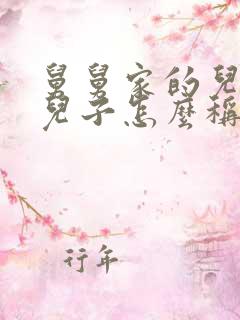 舅舅家的兒
兒子怎麼稱
行年